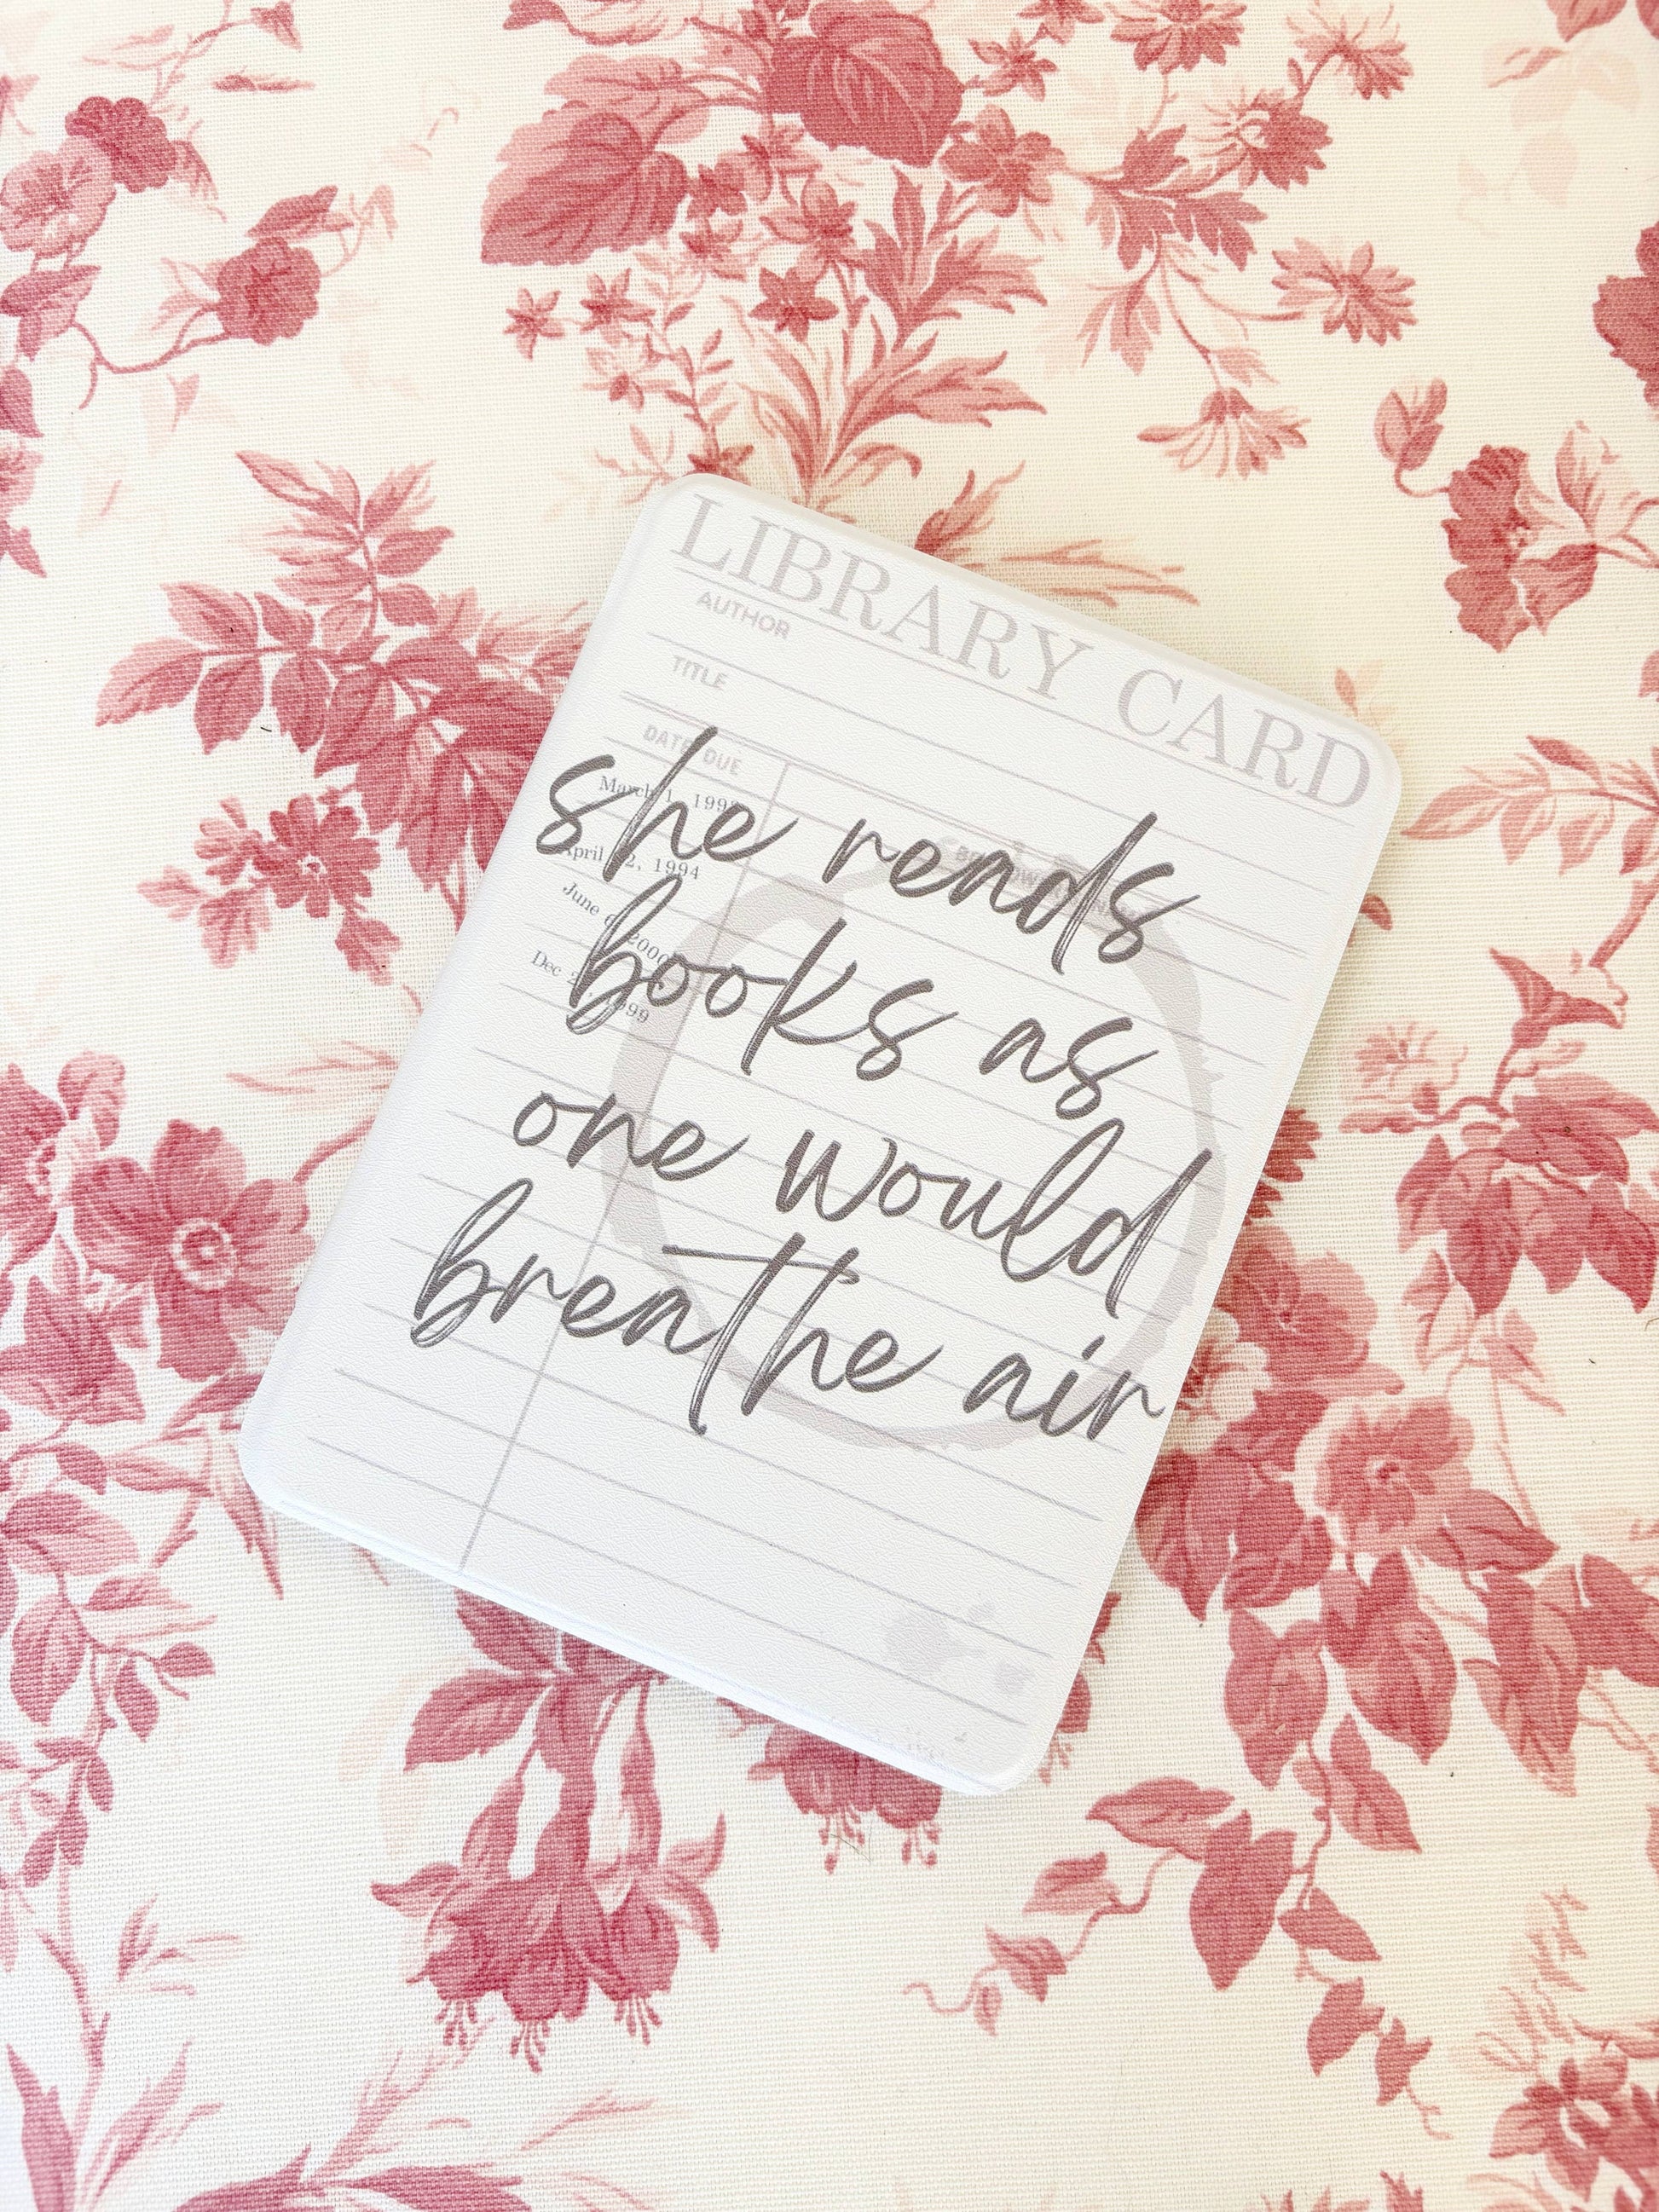 LIBRARY CARD
AUTHOR
TITLE
DATE DUE
March 1, 199
April 2, 1994
June 6, 2000
Dec 2, 1999
she reads
books as
one would
breathe air